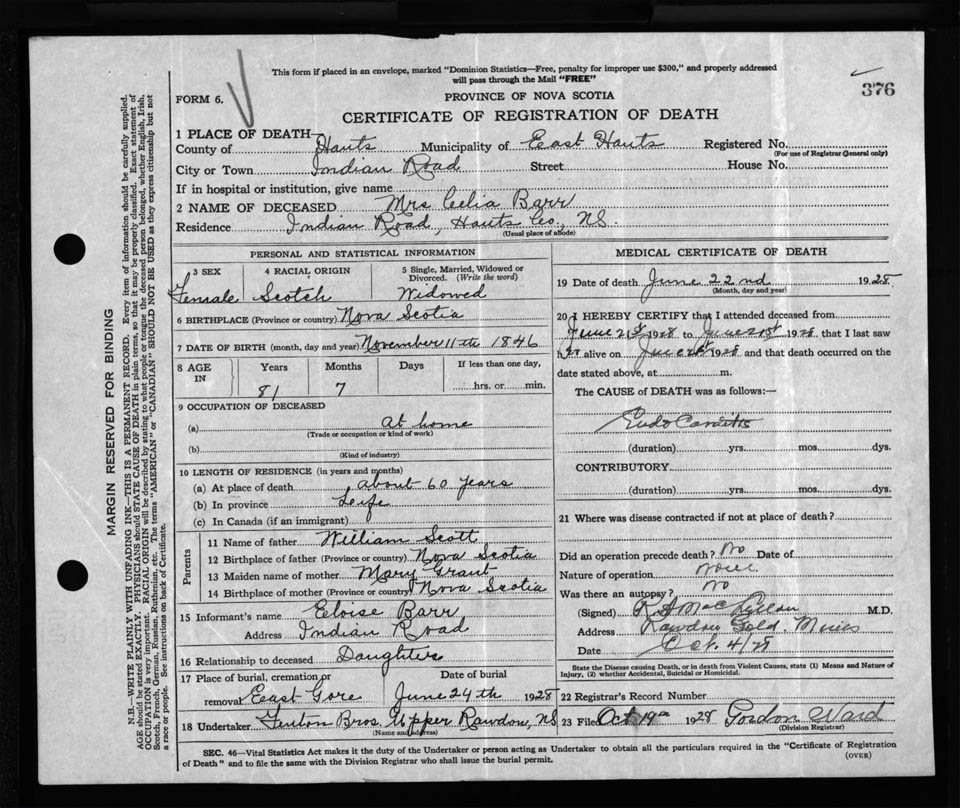 This form if placed in an envelope, marked "Dominion Statistics—Free, penalty for improper use $300," and properly addressed
will pass through the Mail "FREE"
376
FORM 6.
PROVINCE OF NOVA SCOTIA
CERTIFICATE OF REGISTRATION OF DEATH
1 PLACE OF DEATH—
County of Hants Municipality of East Hants Registered No.
(For use of Registrar General only)
City or Town Indian Road Street House No.
If in hospital or institution, give name
2 NAME OF DECEASED Mrs Celia Barr
Residence Indian Road, Hants Co, N.S.
(Usual place of abode)
PERSONAL AND STATISTICAL INFORMATION
3 SEX 4 RACIAL ORIGIN 5 Single, Married, Widowed or
Divorced. (Write the word)
Female Scotch Widowed
6 BIRTHPLACE (Province or country) Nova Scotia
7 DATE OF BIRTH (month, day and year) November 11th 1846
8 AGE IN Years Months Days If less than one day,
81 7 hrs. or min.
9 OCCUPATION OF DECEASED
(a) At home
(Trade or occupation or kind of work)
(b)
(Kind of industry)
10 LENGTH OF RESIDENCE (in years and months)
(a) At place of death about 60 years
(b) In province Life
(c) In Canada (if an immigrant)
Parents
11 Name of father William Scott
12 Birthplace of father (Province or country) Nova Scotia
13 Maiden name of mother Mary Grant
14 Birthplace of mother (Province or country) Nova Scotia
15 Informant's name Eloise Barr
Address Indian Road
16 Relationship to deceased Daughter
17 Place of burial, cremation or Date of burial
removal East Gore June 24th 1928
18 Undertaker Fenton Bros. Upper Rawdon, NS
(Name and address)
MEDICAL CERTIFICATE OF DEATH
19 Date of death June 22nd 1928
(Month, day and year)
20 I HEREBY CERTIFY that I attended deceased from
June 21st 1928 to June 1928 that I last saw
her alive on June 1928 and that death occurred on the
date stated above, at m.
The CAUSE of DEATH was as follows:
Endo Carditis
(duration) yrs. mos. dys.
CONTRIBUTORY
(duration) yrs. mos. dys.
21 Where was disease contracted if not at place of death?
Did an operation precede death? No Date of
Nature of operation none
Was there an autopsy? no
(Signed) M.D.
Address Rawdon Gold. Mines
Date Oct. 4/28
State the Disease causing Death, or in death from Violent Causes, state (1) Means and Nature of
Injury, (2) whether Accidental, Suicidal or Homicidal.
22 Registrar's Record Number
23 Filed Oct 19 1928 Gordon Ward
(Division Registrar)
SEC. 46—Vital Statistics Act makes it the duty of the Undertaker or person acting as Undertaker to obtain all the particulars required in the "Certificate of Registration
of Death" and to file the same with the Division Registrar who shall issue the burial permit.
(OVER)
MARGIN RESERVED FOR BINDING
N.B.—WRITE PLAINLY WITH UNFADING INK—THIS IS A PERMANENT RECORD. Every item of information should be carefully supplied.
AGE should be stated EXACTLY. PHYSICIANS should STATE CAUSE OF DEATH in plain terms, so that it may be properly classified. Exact statement of
OCCUPATION is very important. RACIAL ORIGIN will be described by stating to what people or tongue the deceased person belonged, whether English, Irish,
Scotch, French, German, Russian, Ruthenian, etc. The terms "AMERICAN" or "CANADIAN" SHOULD NOT BE USED as they express citizenship but not
a race or people. See instructions on back of Certificate.